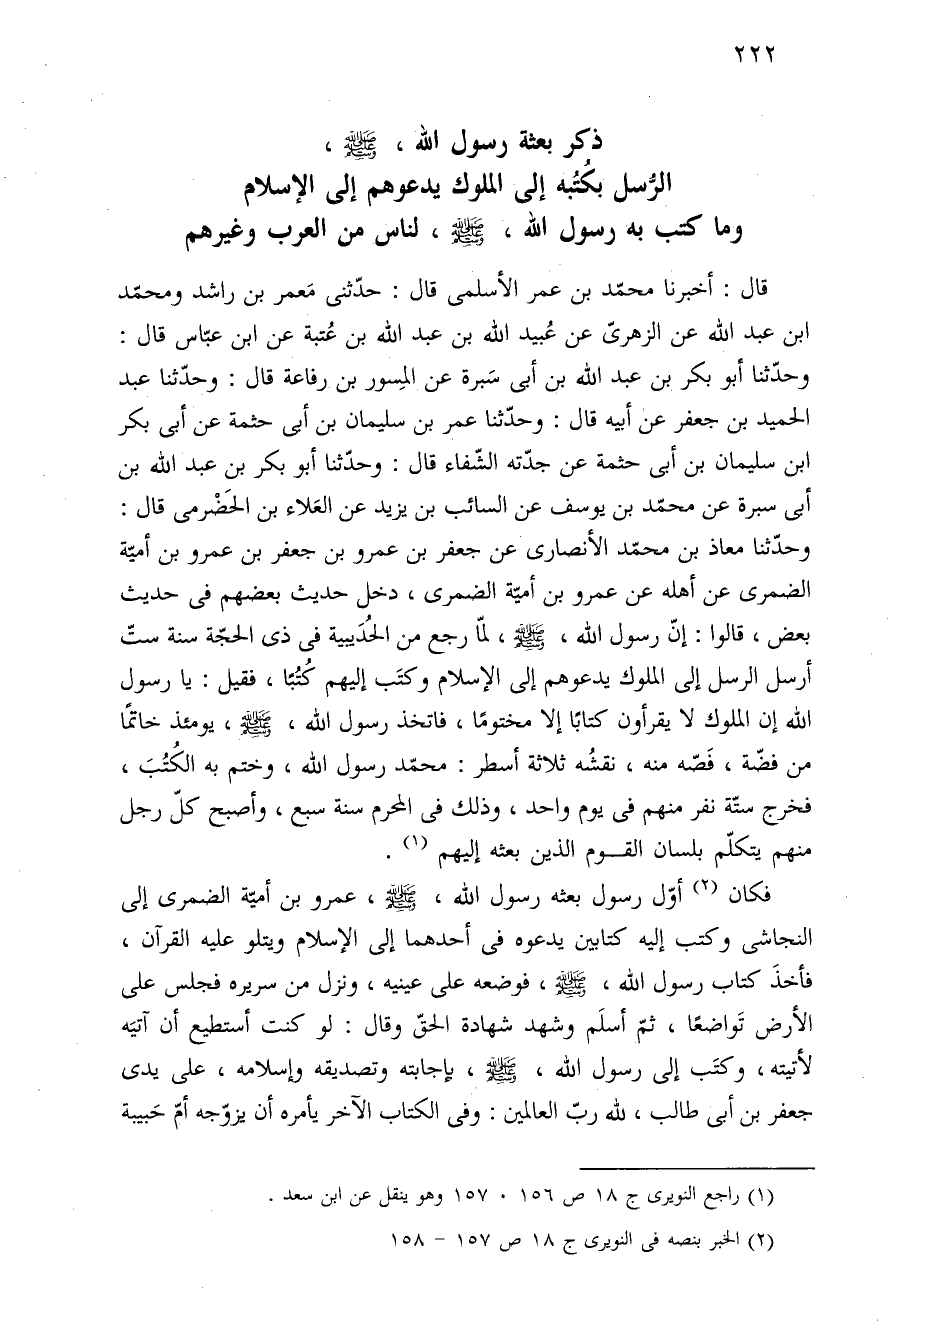 ٢٢٢
ذكر بعثة رسول الله ، ﷺ ،
الرُّسل بكُتُبه إلى الملوك يدعوهم إلى الإسلام
وما كتب به رسول الله ، ﷺ ، لناس من العرب وغيرهم
قال : أخبرنا محمّد بن عمر الأسلمى قال : حدّثنى مَعمر بن راشد ومحمّد
ابن عبد الله عن الزهرىّ عن عُبيد الله بن عبد الله بن عُتبة عن ابن عبّاس قال :
وحدّثنا أبو بكر بن عبد الله بن أبى سَبرة عن المِسور بن رفاعة قال : وحدّثنا عبد
الحميد بن جعفر عن أبيه قال : وحدّثنا عمر بن سليمان بن أبى حثمة عن أبى بكر
ابن سليمان بن أبى حثمة عن جدّته الشّفاء قال : وحدّثنا أبو بكر بن عبد الله بن
أبى سبرة عن محمّد بن يوسف عن السائب بن يزيد عن العَلاء بن الحَضْرمى قال :
وحدّثنا معاذ بن محمّد الأنصارى عن جعفر بن عمرو بن جعفر بن عمرو بن أميّة
الضمرى عن أهله عن عمرو بن أميّة الضمرى ، دخل حديث بعضهم فى حديث
بعض ، قالوا : إنّ رسول الله ، ﷺ ، لمّا رجع من الحُدَيبية فى ذى الحجّة سنة ستّ
أرسل الرسل إلى الملوك يدعوهم إلى الإسلام وكتَب إليهم كُتُبًا ، فقيل : يا رسول
الله إن الملوك لا يقرأون كتابًا إلا مختومًا ، فاتخذ رسول الله ، ﷺ ، يومئذ خاتمًا
من فضّة ، فَصّه منه ، نقشُه ثلاثة أسطر : محمّد رسول الله ، وختم به الكُتُبَ ،
فخرج ستّة نفر منهم فى يوم واحد ، وذلك فى المحرم سنة سبع ، وأصبح كلّ رجل
منهم يتكلّم بلسان القوم الذين بعثه إليهم (١) .
فكان (٢) أوّل رسول بعثه رسول الله ، ﷺ ، عمرو بن أميّة الضمرى إلى
النجاشى وكتب إليه كتابين يدعوه فى أحدهما إلى الإسلام ويتلو عليه القرآن ،
فأخذَ كتاب رسول الله ، ﷺ ، فوضعه على عينيه ، ونزل من سريره فجلس على
الأرض تَواضعًا ، ثمّ أسلَم وشهد شهادة الحقّ وقال : لو كنت أستطيع أن آتيَه
لأتيته ، وكتَب إلى رسول الله ، ﷺ ، بإجابته وتصديقه وإسلامه ، على يدى
جعفر بن أبى طالب ، لله ربّ العالمين : وفى الكتاب الآخر يأمره أن يزوّجه أمّ حَبيبة
(١) راجع النويرى ج ١٨ ص ١٥٦ ، ١٥٧ وهو ينقل عن ابن سعد .
(٢) الخبر بنصه فى النويرى ج ١٨ ص ١٥٧ – ١٥٨